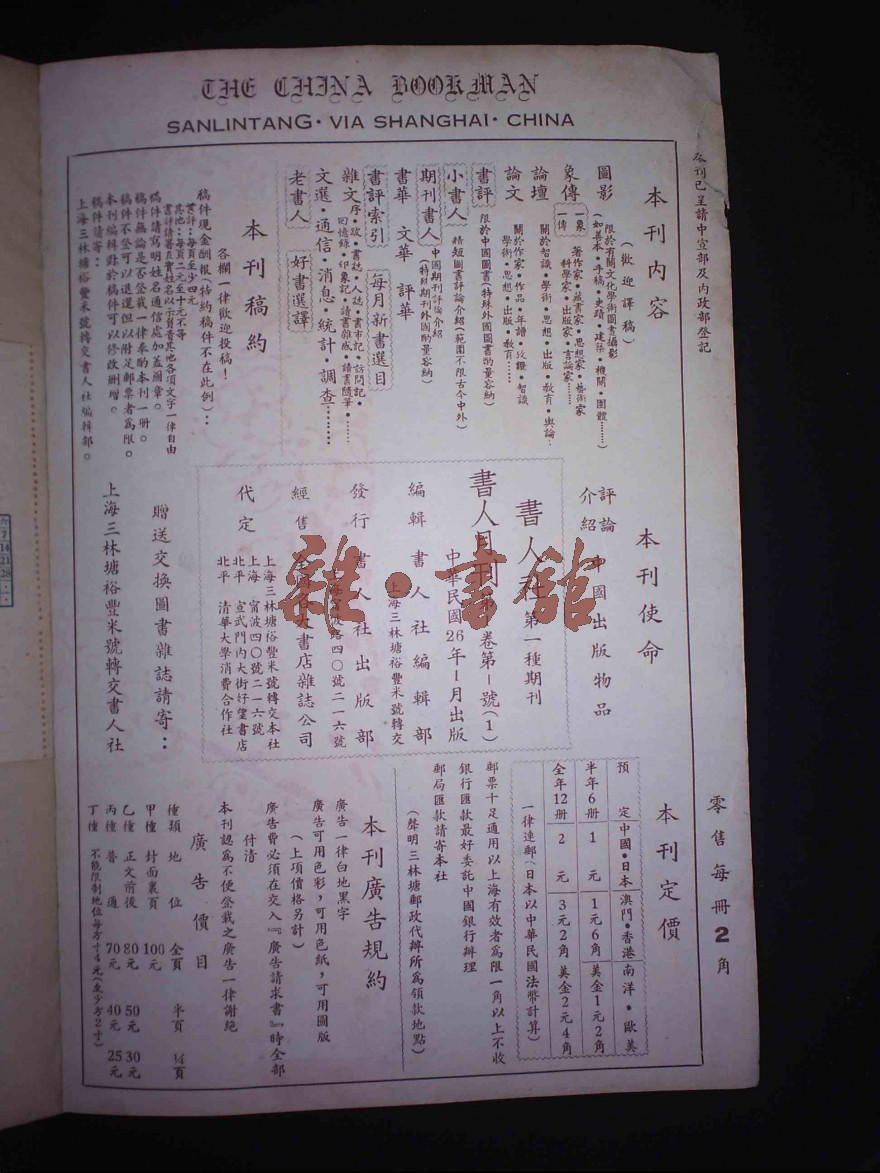 THE CHINA BOOKMAN
SANLINTANG · VIA SHANGHAI · CHINA
本刊已呈請中宣部及內政部登記
本刊內容
(歡迎譯稿)
圖影
限於有關文化學術圖書攝影
(如善本·手稿·史蹟·建築·機關·團體……)
象傳
一象 著作家·藏書家·思想家·藝術家
一傳 科學家·出版家·言論家……
論壇
關於智識·學術·思想·出版·教育·輿論
論文
關於作家·作品·年譜·攷證·智識
學術·思想·出版·教育……
書評
限於中國圖書(特殊外國圖書酌量容納)
小書人
精短圖書評論介紹(範圍不限古今中外)
期刊書人
中國期刊評論介紹
(特殊期刊外國酌量容納)
書華 文華 評華
書評索引 每月新書選目
雜文
序·跋·書誌·人誌·書市記·訪問記·
回憶錄·印象記·讀書雜感·讀書隨筆·……
文選·通信·消息·統計·調查………
老書人 好書選譯
本刊稿約
各欄一律歡迎投稿!
稿件現金酬報(特約稿件不在此例):
書評:每頁至少四元
其他:每頁二元至十元不等
書評請署真實姓名以示負責其他各項文字一律自由
稿件請寫明姓名通信處加蓋圖章。
稿件無論是否登載一律奉酌本刊一册。
稿件不登可以退還但以附足郵票者爲限。
本刊編輯對於稿件可以修改刪增。
稿件請寄:
上海三林塘裕豐米號轉交書人社編輯部。
本刊使命
評論
介紹
中國出版物品
書人社第一種期刊
書人月刊第一卷第一號(1)
中華民國26年1月出版
編輯 書人社編輯部
上海三林塘裕豐米號轉交
發行 書人社出版部
上海甯波路四〇號二一六號
經售 全國各大書店雜誌公司
代定
上海三林塘裕豐米號轉交本社
上海 甯波四〇號二一六號
北平 宣武門內大街好望書店
北平 清華大學消費合作社
贈送交換圖書雜誌請寄:
上海三林塘裕豐米號轉交書人社
零售每冊2角
本刊定價
預定 中國·日本 澳門·香港 南洋·歐美
半年6册 1元 1元6角 美金1元2角
全年12册 2元 3元2角 美金2元4角
一律連郵(日本以中華民國法幣計算)
郵票十足通用以上海有效者爲限一角以上不收
銀行匯款最好委託中國銀行辦理
郵局匯款請寄本社
(聲明三林塘郵政代辦所爲領款地點)
本刊廣告規約
廣告一律白地黑字
廣告可用色彩,可用色紙,可用圖版
(上項價格另計)
廣告費必須在交入『廣告請求書』時全部
付清
本刊認爲不便登載之廣告一律謝絕
廣告價目
種類 地位 全頁 半頁 ¼頁
甲種 封面裏頁 100元
乙種 正文前後 80元 50元 30元
丙種 普通 70元 40元 25元
丁種 不能限制地位每方寸4元(至少方2寸)
雜·書館
六
7
14
21
28